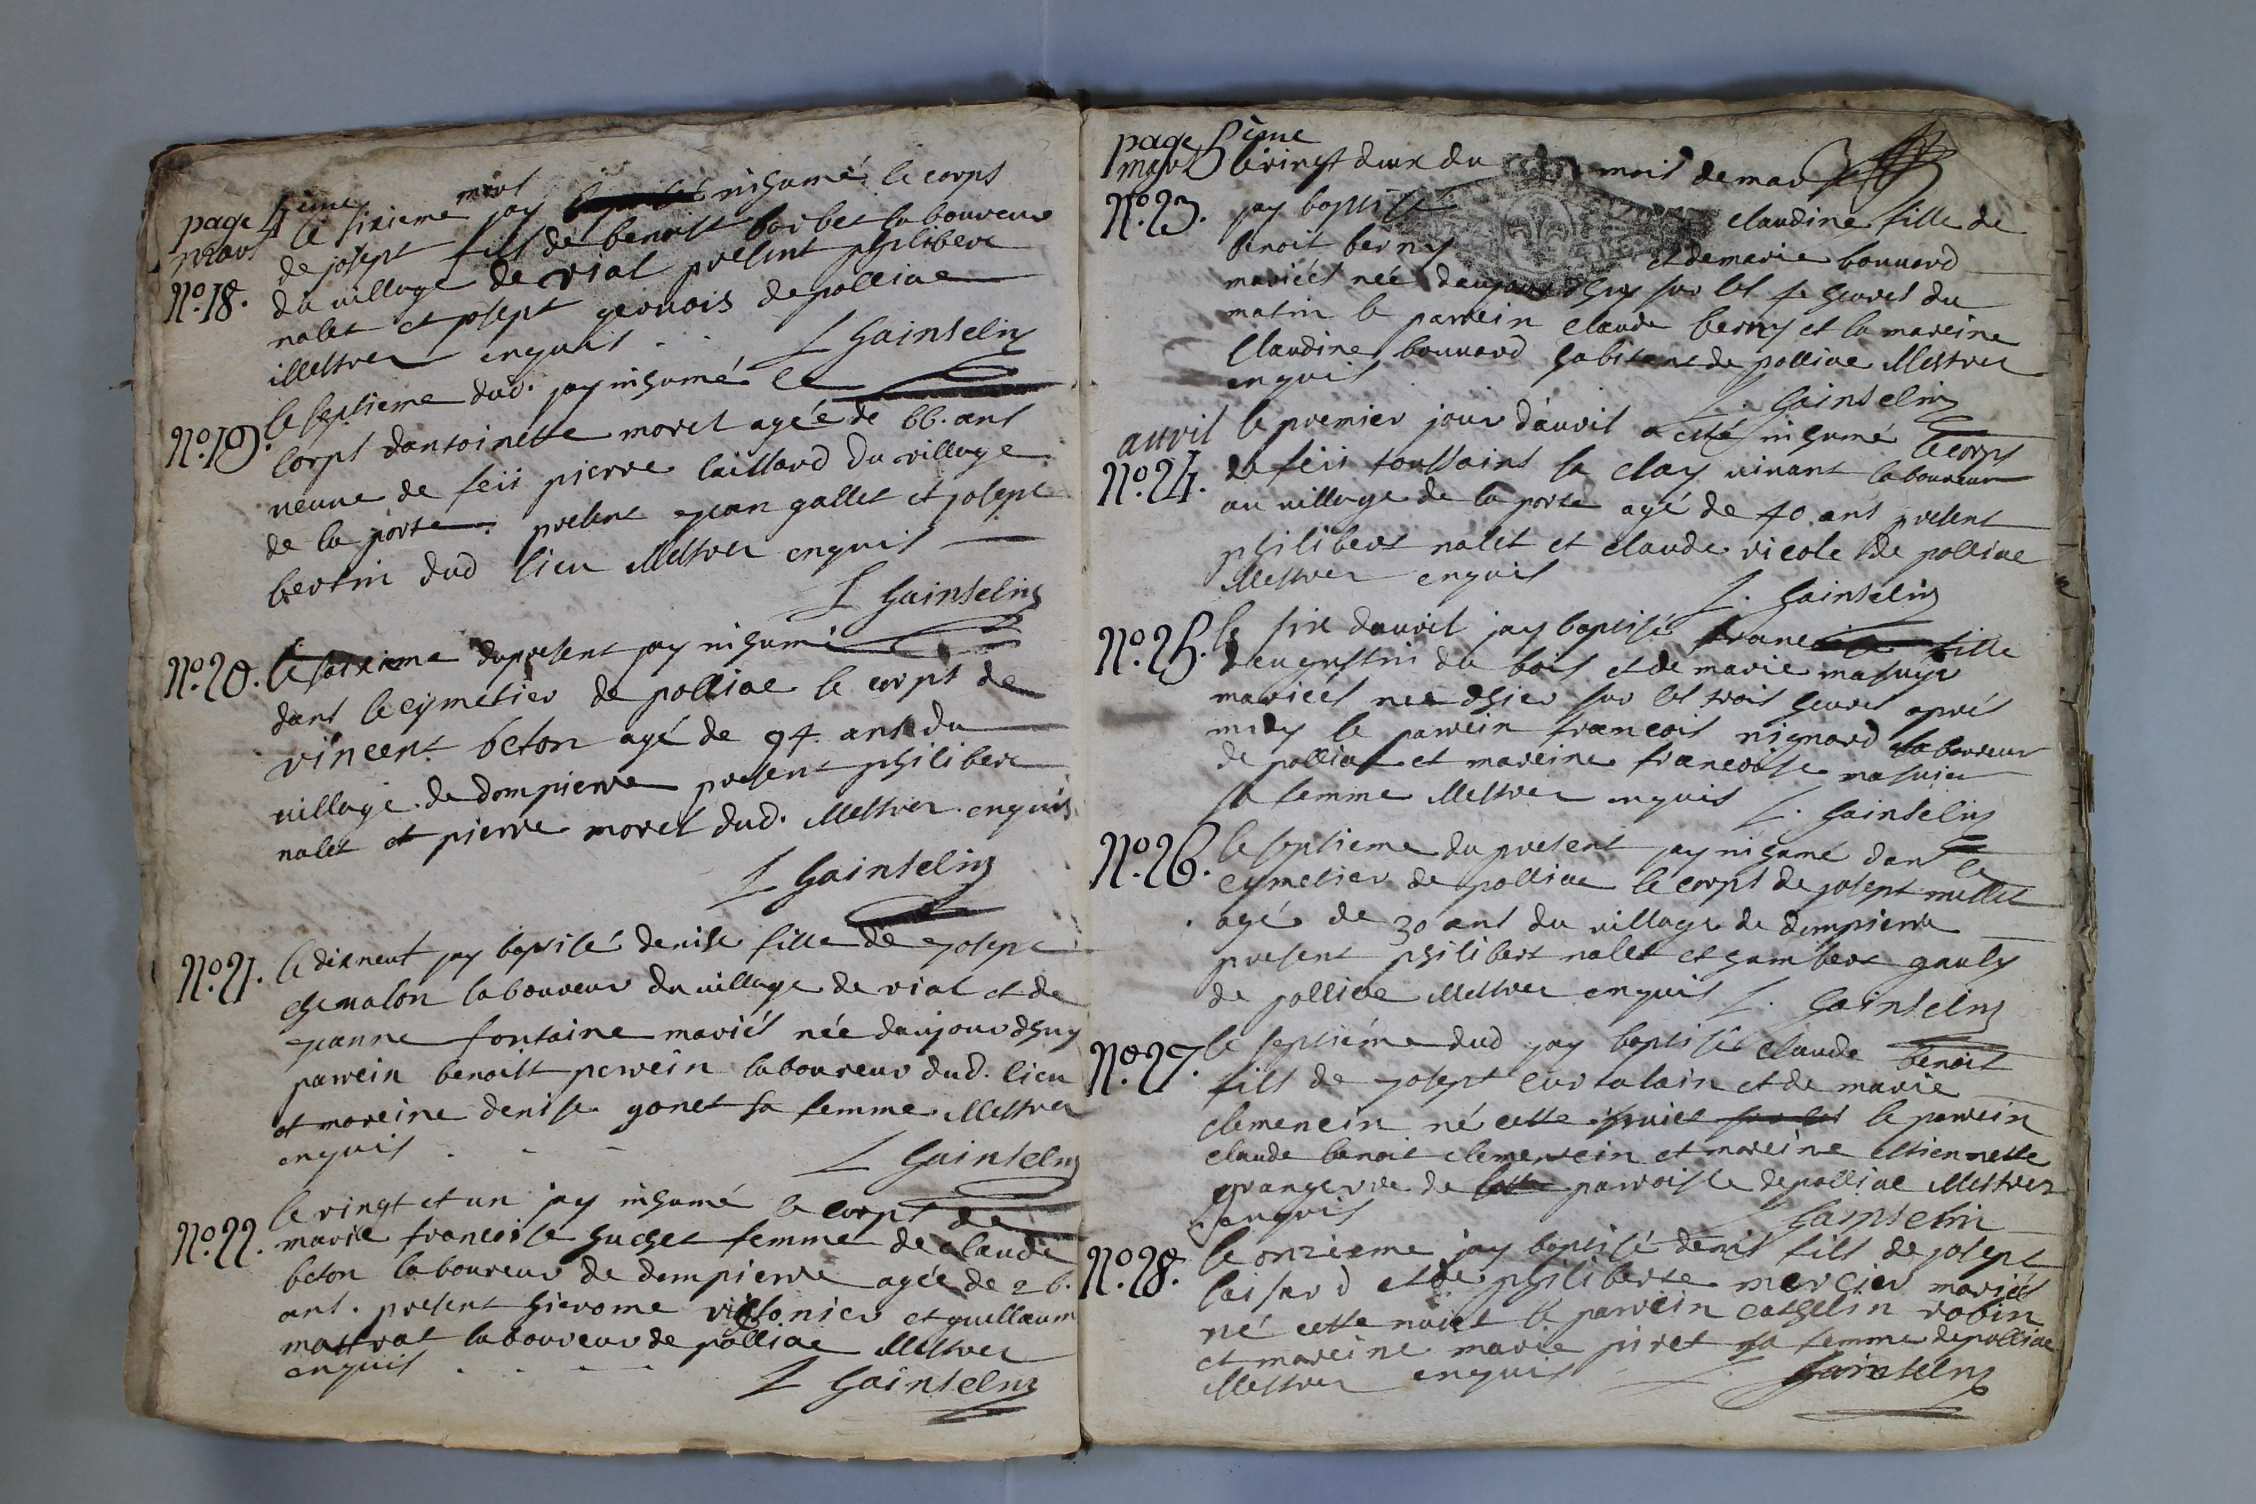 page 4 eme
mars le sixieme mars jay inhumé le corps
N.o 18. de josept fils de benoist barbet laboureur
du village de vial présent philibert
nalet et josept gervois de polliac
illettrez enquis . . L Gainselin
le septieme dud. jay inhumé le
N.o 19. corps dantoinette morel agée de 66. ans
veuve de feii pierre caillard du village
de la porte présent jean gallet et josept
bertin dud lieu illettrez enquis
L Gainselin
N.o 20. le seixieme du present jay inhumé
dans le cymetier de polliac le corps de
vincent beton agé de 94. ans du
village de dompierre present philibert
nalet et pierre morel dud. illettrez enquis
L Gainselin
N.o 21. le dixneuf jay baptisé denise fille de josept
chevalon laboureur du village de vial et de
jeanne fontaine mariés née daujourdhuy
parrein benoist perrein laboureur dud. lieu
et mareine denise gonet sa femme illettrez
enquis . - - L Gainselin
le vingt et un jay inhumé le corps de
N.o 22. marie francoise huchet femme de claude
beton laboureur de dompierre agée de 26.
ans. present hierome et guillaum
mattrat laboureur de polliac illettrez
enquis . . - - L Gainselin
page 5 eme
mars le vingt deux du mois de mars
N.o 23. jay baptisé claudine fille de
benoit berny et de marie bouvard
mariés née daujourdhuy sur les 4 heures du
matin le parrein claude berny et la mareine
claudine bouvard habitant de polliac illettrez
enquis L. Gainselin
auvril le premier jour dauvril a esté inhumé le corps
N.o 24. de feii toussains la clay vivant laboureur
au village de la porte agé de 40. ans present
philibert nalet et claude vicole de polliac
illettrez enquis L. Gainselin
N.o 25. le six dauvril jay baptisé fille
daugustin du bois et de marie masuyr
mariés née dhier sur les trois heures aprés
midy le parrein francois nignard laboureur
de polliac et mareine francoise masuier
sa femme illettrez enquis L. Gainselin
N.o 26. le septieme du present jay inhumé dans le
cymetier de polliac le corps de josept millet
agé de 30 ans du village de dompierre
present philibert nalet et humbert gauly
de polliac illettrez enquis L. Gainselin
N.o 27. le septiéme dud jay baptisé claude benoit
fils de josept curtalain et de marie
clemencin né cette nuict le parrein
claude benoit clemencin et mareine estiennette
grangerre de parroisse de polliac illettrez
enquis Gainselin
N.o 28. le onzieme jay baptisé denis fils de josept
caisard et de philiberte mercier mariés
né cette nuict le parrein cathelin robin
et mareine marie piret sa femme de polliac
illettrez enquis L. Gainselin